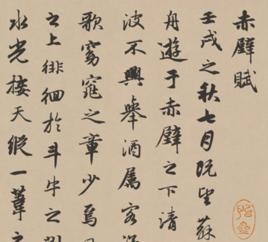 赤壁賦
壬戌之秋七月既望蘇
舟遊于赤壁之下清
波不興舉酒屬客
歌窈窕之章少焉
之上徘徊於斗牛之
水光接天縱一葦之